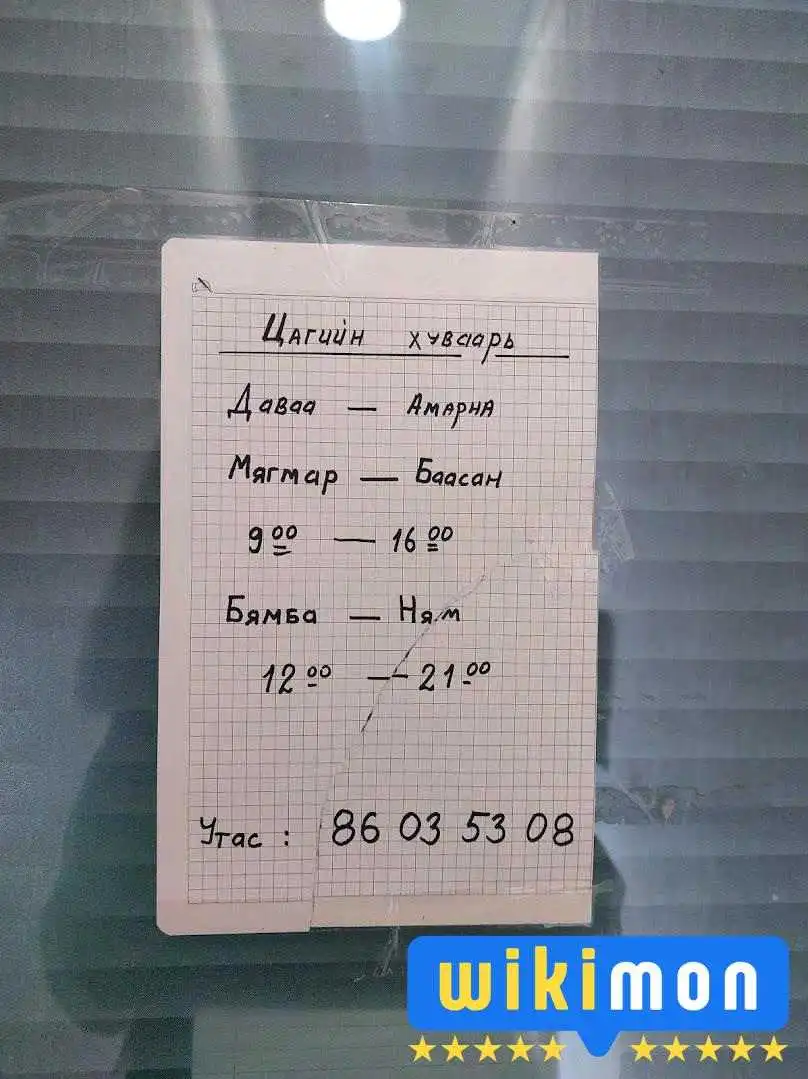 Цагийн хуваарь
Даваа — Амарна
Мягмар — Баасан
9⁰⁰ — 16⁰⁰
Бямба — Ням
12⁰⁰ — 21⁰⁰
Утас : 86 03 53 08
wikimon